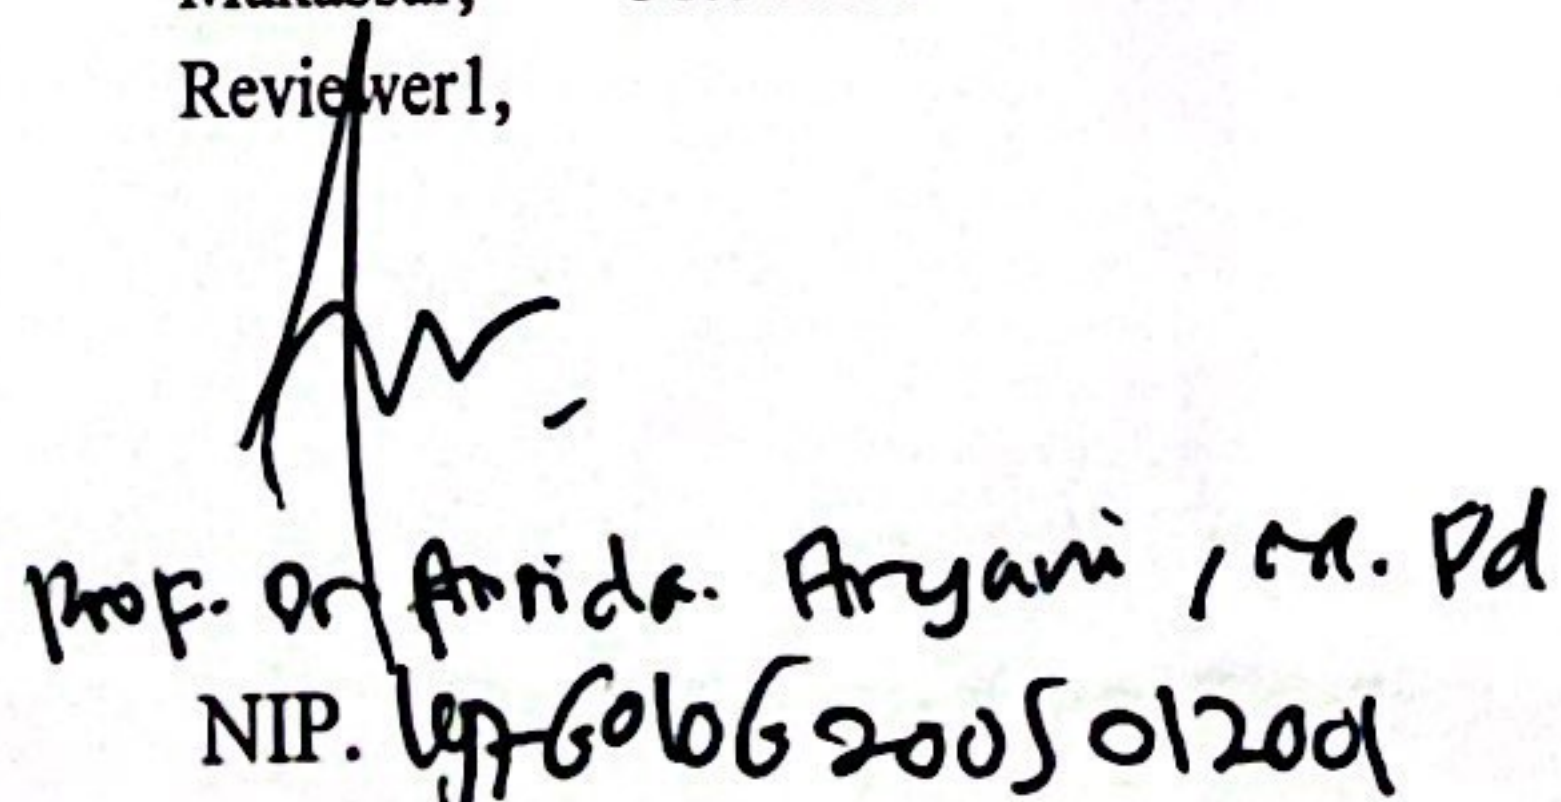 Makassar,
Reviewer1,
Prof. Dr Farida. Aryani, M. Pd
NIP. 197601062005012001